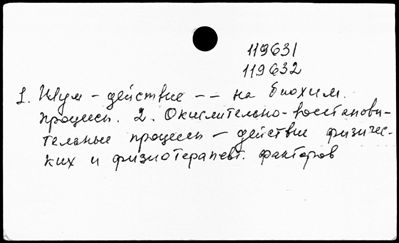 119631
119632
1. Шум - действие -- на биохим.
процессы. 2. Окислительно-восстанови-
тельные процессы - действие физичес-
ких и физиотерапевт. факторов